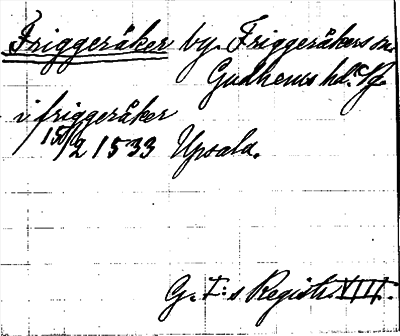 Friggeråker by. Friggeråkers sn.
Gudhems hd. Vg.
i friggeråker
15/2 1533 Upsala.
G. I:s Registr. VIII.